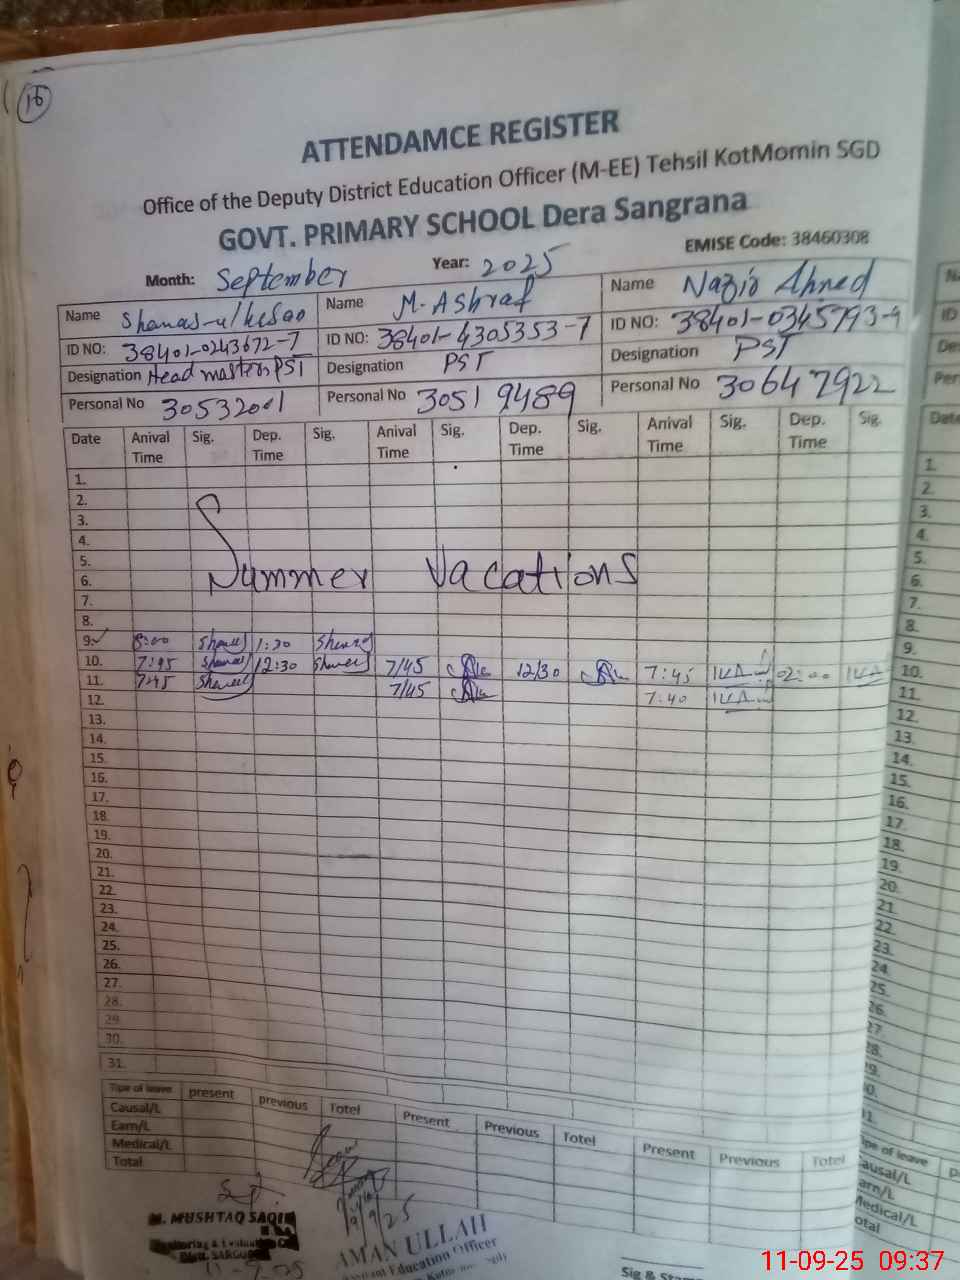 16
ATTENDAMCE REGISTER
Office of the Deputy District Education Officer (M-EE) Tehsil KotMomin SGD
GOVT. PRIMARY SCHOOL Dera Sangrana
EMISE Code: 38460308
Month: September Year: 2025
Name Name M. Ashraf Name Nazir Ahmed
ID NO: 38401-0243672-7 ID NO: 38401-4305353-7 ID NO: 38401-0345793-9
Designation Head master PST Designation PST Designation PST
Personal No 30532001 Personal No 30519489 Personal No 30647922
Date Anival Time Sig. Dep. Time Sig. Anival Time Sig. Dep. Time Sig. Anival Time Sig. Dep. Time Sig.
1.
2.
3.
4.
5.
6.
Summer Vacations
7.
8.
9. 8:00 1:30
10. 7:45 12:30 7/45 12/30 7:45 02:00
11. 7:45 7/45 7:40
12.
13.
14.
15.
16.
17.
18.
19.
20.
21.
22.
23.
24.
25.
26.
27.
28.
29.
30.
31.
Tipe of leave present previous Totel Present Previous Totel Present Previous Totel
Causal/L
Earn/L
Medical/L
Total
M. MUSHTAQ SAQIB
11-9-25
9/9/25
AMAN ULLAH
Education Officer
Sig & Stamp
11-09-25 09:37